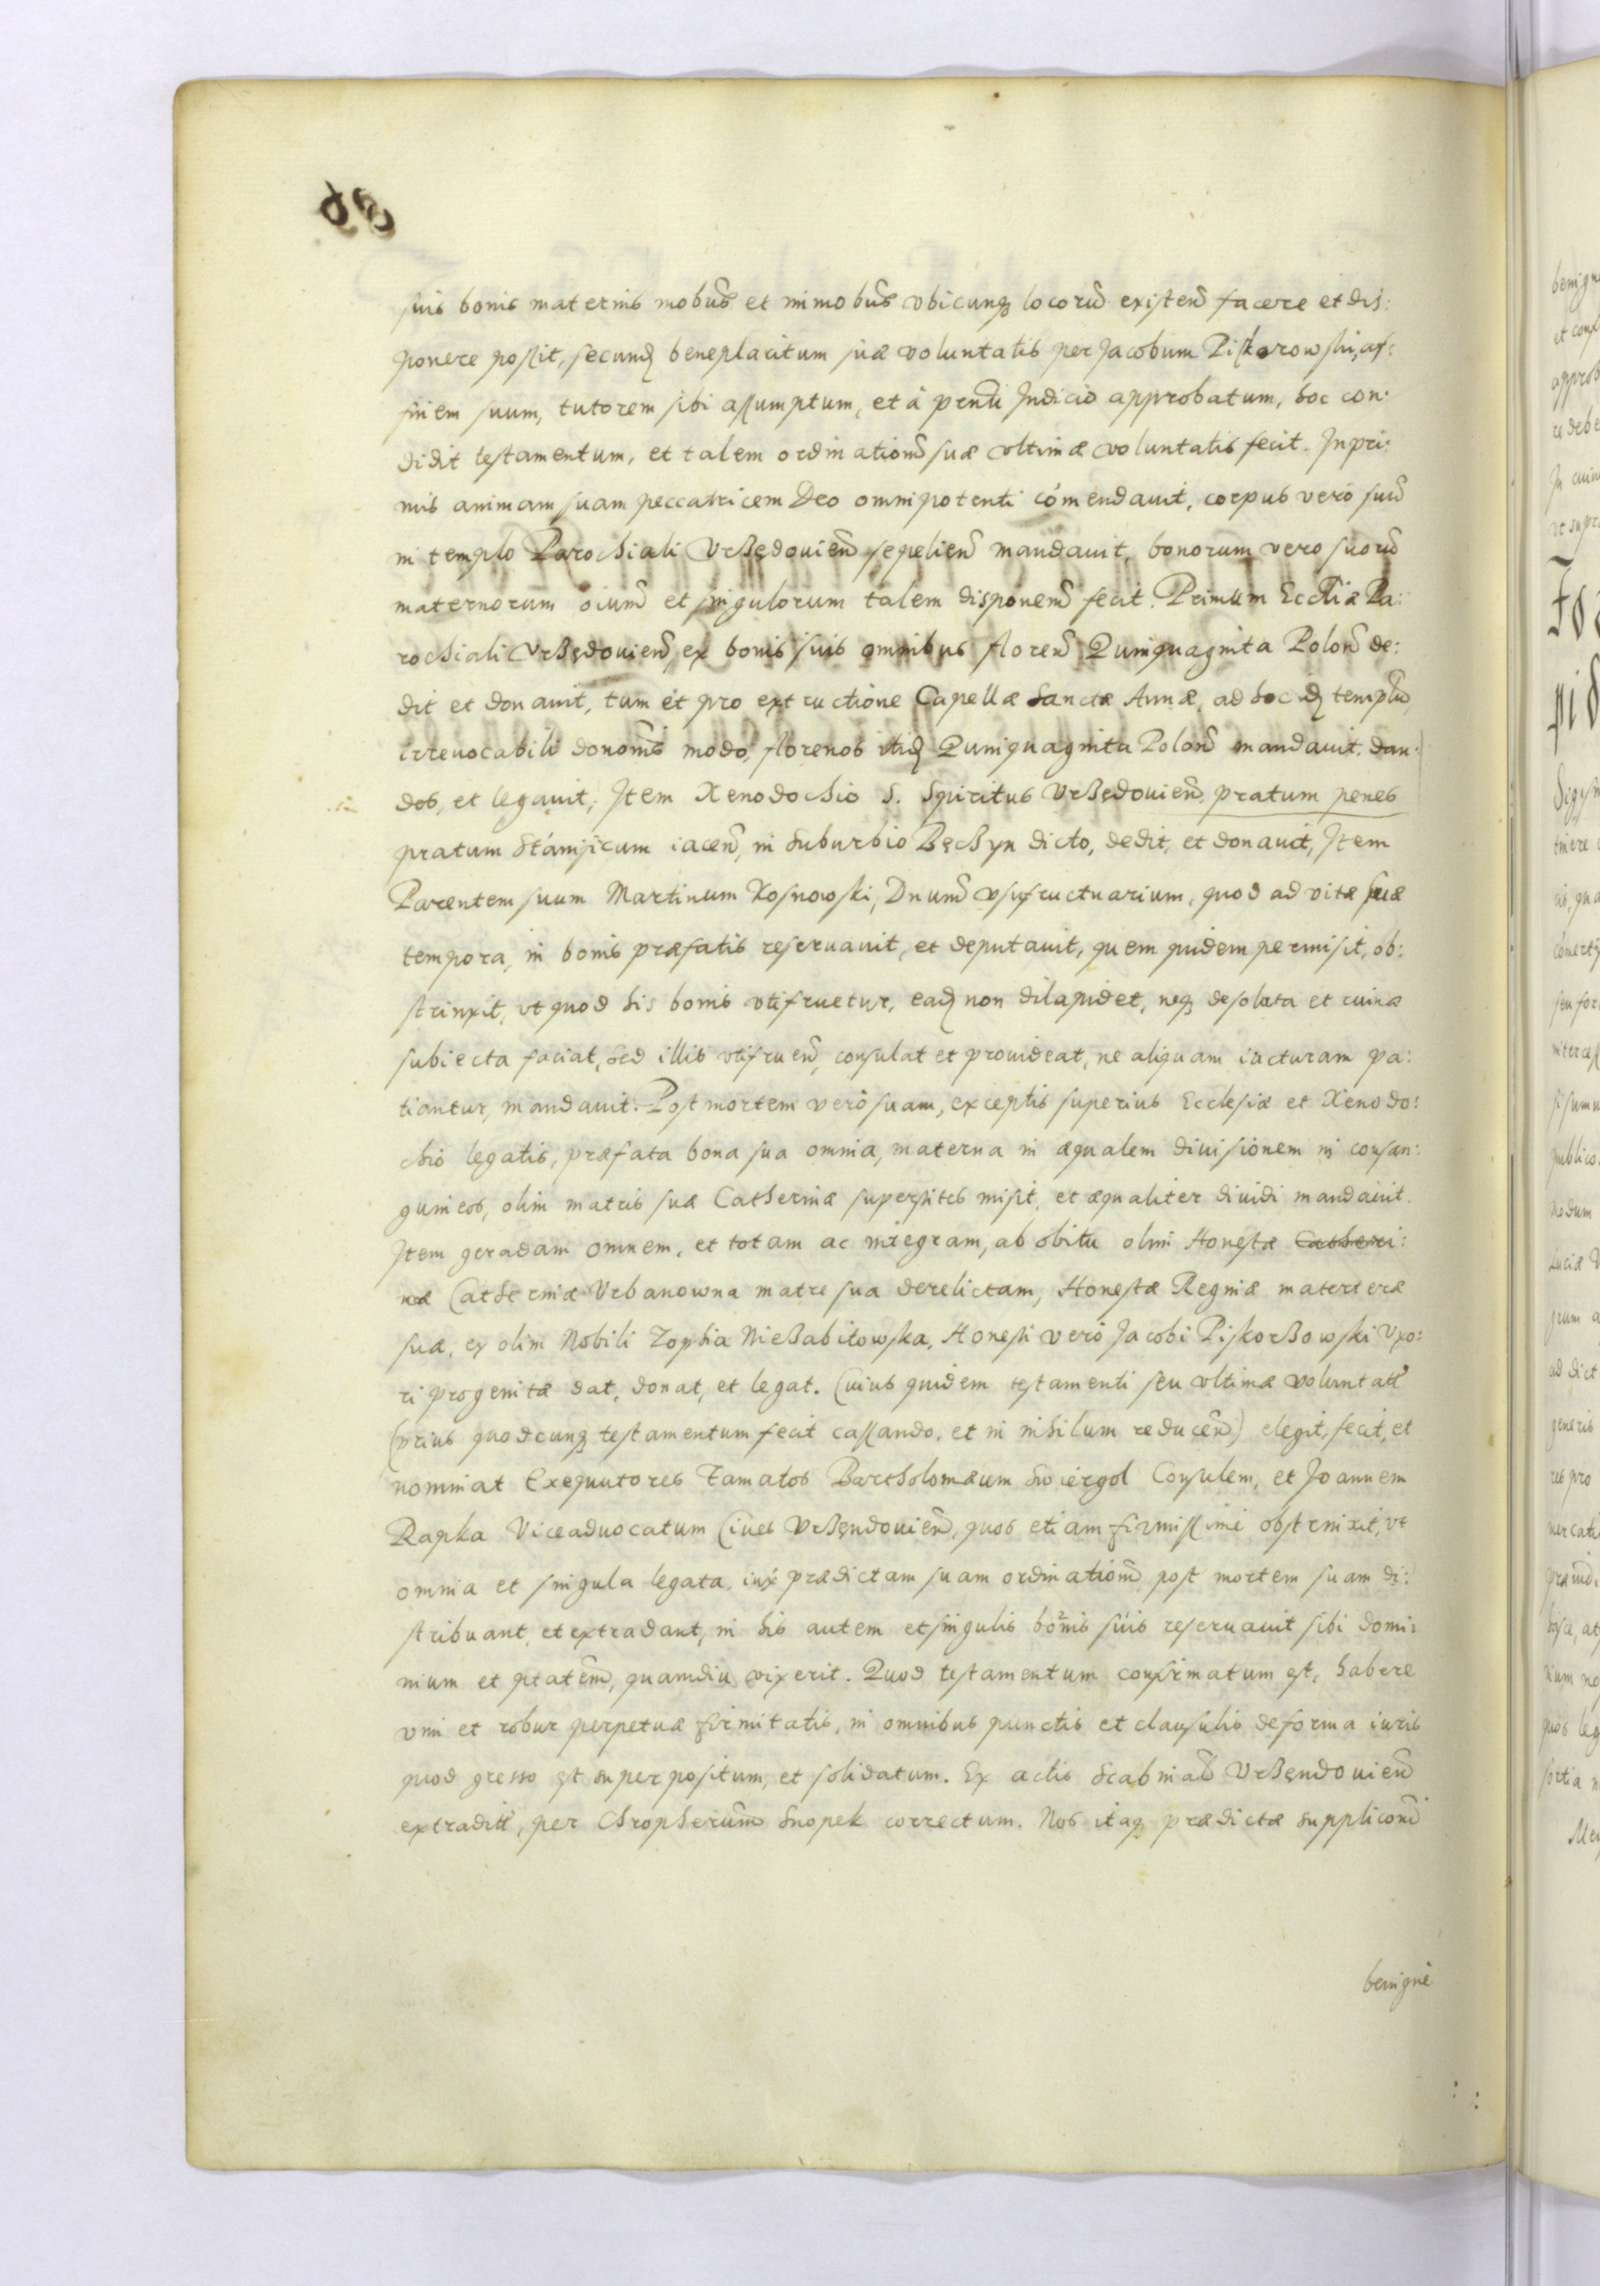 suis bonis maternis mobũs et immobũs vbicunq₃ locorũ existeñ facere et dis:
ponere possit, secunđ beneplacitum suæ voluntatis per Jacobum Piskorowski, af:
finem suum, tutorem sibi assumptum, et à prñti Judicio approbatum, hoc con:
didit testamentum, et talem ordinationẽ suæ vltimæ voluntatis fecit. Inpri:
mis animam suam peccatricem Deo omnipotenti cõmendauit, corpus verò suũ
in templo Parochiali Vrßędouieñ sepelieñ mandauit, bonorum vero suorũ
maternorum oium̃ et singulorum talem disponem̃ fecit. Primum Eccłiæ Pa:
rochiali Vrßędouieñ, ex bonis suis omnibus floreñ Quinquaginta Poloñ de:
dit et donauit, tum et pro extructione Capellæ Sanctæ Annæ, ad hoc iđ templũ,
irreuocabili donom̃is modo, florenos itiđ Quinquaginta Poloñ mandauit. dan:
dos, et legauit, Item Xenodochio S. Spiritus Vrßędouieñ, pratum penes
pratum Stánisicum iaceñ, in suburbio Bęchyn dicto, dedit, et donauit, Item
Parentem suum Martinum Kosnowski, Dnum̃ vsufructuarium, quod ad vitæ suæ
tempora, in bonis præfatis reseruauit, et deputauit, quem quidem permisit, ob:
strinxit, vt quod his bonis vtifruetur, eađ non dilapidet, neq₃ desolata et ruinæ
subiecta faciat, sed illis vtifrueñ, consulat et prouideat, ne aliquam iacturam pa:
tiantur, mandauit. Post mortem verò suam, exceptis superius Ecclesiæ et Xenodo:
chio legatis, præfata bona sua omnia, materna in æqualem diuisionem in consan:
guineos, olim matris suæ Catherinæ superstites misit, et æqualiter diuidi mandauit.
Item geradam omnem, et totam ac integram, ab obitu olim Honestæ Catheri:
næ Catherinæ Vrbanowna matre sua derelictam, Honestæ Reginæ materteræ
suæ, ex olim Nobili Zophia Nießabitowska, Honesti verò Jacobi Piskorßowski Vxo:
ri progenitæ dat, donat, et legat. Cuius quidem testamenti seu vltimæ voluntatĩ
(prius quodcunq₃ testamentum fecit cassando, et in nihilum reduceñ) elegit, fecit, et
nominat Exequutores Famatos Bartholomæum Swiergol Consulem, et Joannem
Rapka Viceaduocatum Ciues Vrßęndouieñ, quos etiam firmissimè obstrinxit, vt
omnia et singula legata, iux̃ prædictam suam ordinationẽ, post mortem suam di:
stribuant, et extradant, in his autem et singulis bonis suis reseruauit sibi domi:
nium et ptatem̃, quamdiu vixerit. Quod testamentum confirmatum est, habere
vim et robur perpetuæ firmitatis, in omnibus punctis et clausulis de forma iuris
quod gresso est superpositum, et solidatum. Ex actis Scabinał Vrßęndouieñ
extraditt, per Chropherum̃ Snopek correctum. Nos itaq₃ prædictæ supplicoñi
benignè